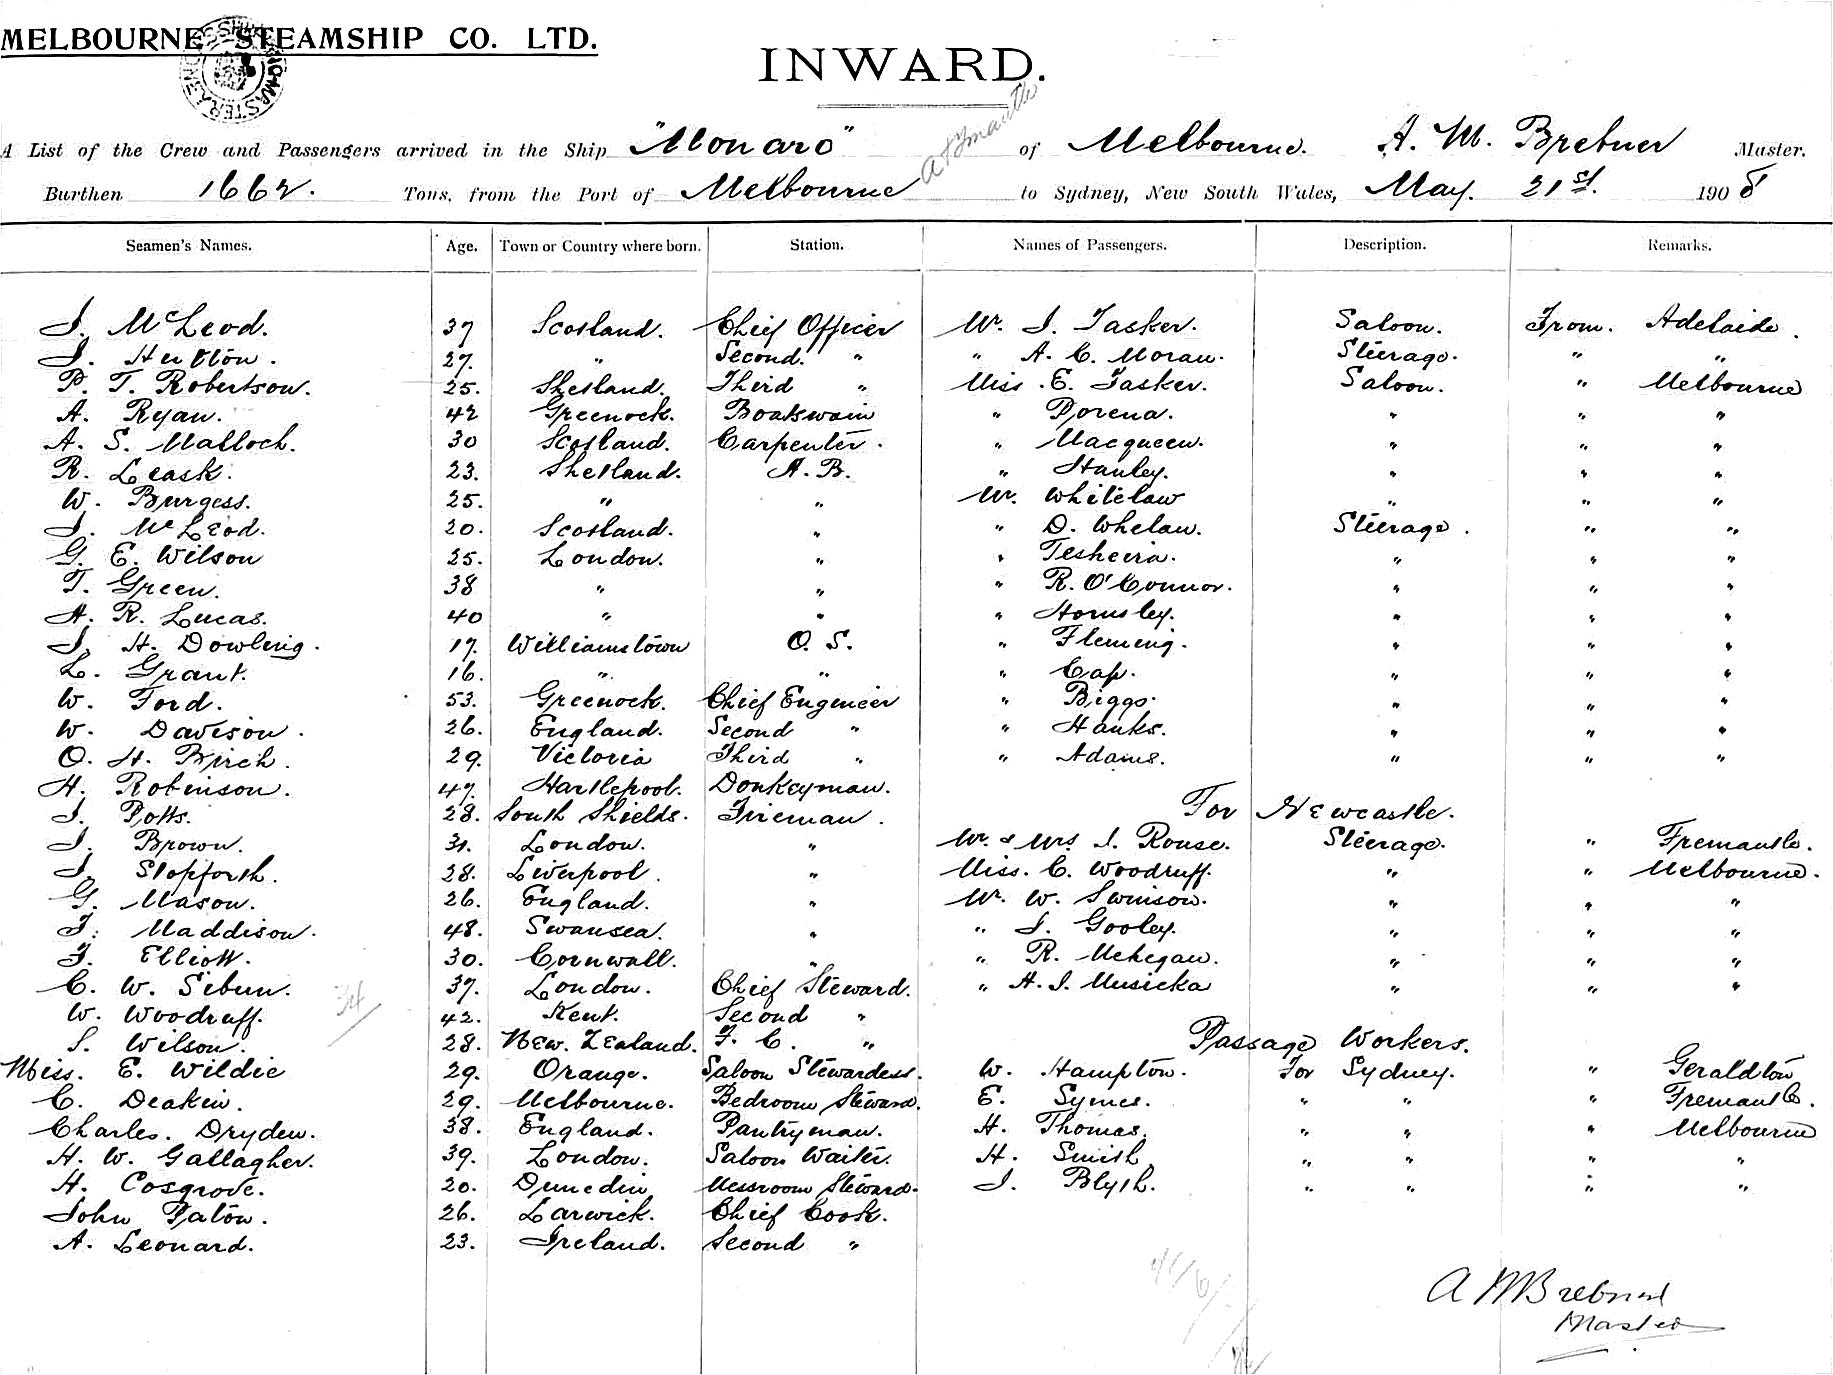 MELBOURNE STEAMSHIP CO. LTD.
INWARD.
A List of the Crew and Passengers arrived in the Ship "Monaro" of Melbourne. A. M. Brebner Master.
Burthen 1662. Tons, from the Port of Melbourne to Sydney, New South Wales, May. 21st. 1908
Seamen's Names. Age. Town or Country where born. Station. Names of Passengers. Description. Remarks.
J. McLeod. 37 Scotland. Chief Officer Mr. J. Tasker. Saloon. From. Adelaide.
J. Hutton. 27. " Second. " " A. C. Moran. Steerage. " "
P. T. Robertson. 25. Shetland. Third " Miss. E. Tasker. Saloon. " Melbourne
A. Ryan. 42 Greenock. Boatswain " Dorena. " " "
A. S. Malloch. 30 Scotland. Carpenter. " Macqueen. " " "
R. Leask. 23. Shetland. A. B. " Stanley. " " "
W. Burgess. 25. " " Mr. Whitelaw " " "
J. McLeod. 20. Scotland. " " D. Whelan. Steerage. " "
G. E. Wilson 25. London. " " Tesheira. " " "
T. Green. 38 " " " R. O'Connor. " " "
A. R. Lucas. 40 " " " Hornsley. " " "
J. H. Dowling. 17. Williamstown O. S. " Fleming. " " "
L. Grant. 16. " " " Cap. " " "
W. Ford. 53. Greenock. Chief Engineer " Biggs. " " "
W. Davison. 26. England. Second " " Hanks. " " "
O. H. Birch. 29. Victoria Third " " Adams. " " "
H. Robinson. 47. Hartlepool. Donkeyman.
For Newcastle.
J. Potts. 28. South Shields. Fireman.
J. Brown. 31. London. " Mr. & Mrs J. Rouse. Steerage. " Fremantle.
J. Stopforth. 28. Liverpool. " Miss. C. Woodruff. " " Melbourne.
G. Mason. 26. England. " Mr. W. Swinson. " " "
J. Maddison. 48. Swansea. " " J. Gooley. " " "
J. Elliott. 30. Cornwall. " " R. Mehegan. " " "
C. W. Sibun. 37. London. Chief Steward. " A. J. Musicka " " "
W. Woodruff. 42. Kent. Second "
Passage Workers.
S. Wilson. 28. New. Zealand. F. C. "
Miss. E. Wildie 29. Orange. Saloon Stewardess. W. Hampton. For Sydney. " Geraldton
C. Deakin. 29. Melbourne. Bedroom Steward. E. Symes. " " " Fremantle.
Charles. Dryden. 38. England. Pantryman. H. Thomas. " " " Melbourne
H. W. Gallagher. 39. London. Saloon Waiter. H. Smith " " " "
H. Cosgrove. 20. Dunedin Messroom Steward. J. Blyth. " " " "
John Paton. 26. Larwick. Chief Cook.
A. Leonard. 23. Ireland. Second "
A M Brebner
Master